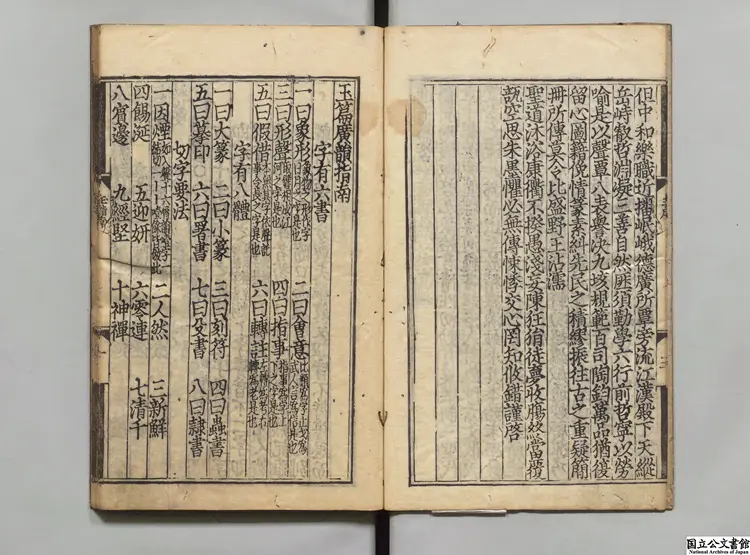 但中和樂職近播岷峨德廣所覃旁流江漢殿下天縱
岳峙叡哲淵凝三善自然匪須勤學六行前哲寧以勞
喻是以聲覃八表譽決九垓規範百司陶鈞萬品猶復
留心圖籍俛情篆素糾先民之積繆振往古之重疑簡
冊所傳莫令比盛野王沾濡
聖道沐浴康衢不揆愚淺妄陳狂狷徒夢收腸終當覆
瓿空思朱墨懼必無傳悚悸交心罔知攸錯謹啓
玉篇廣韻指南
字有六書
一曰象形 二曰會意
三曰形聲 四曰指事
五曰假借 六曰轉註
字有八體
一曰大篆 二曰小篆 三曰刻符 四曰蟲書
五曰摹印 六曰署書 七曰殳書 八曰隸書
切字要法
一因煙 二人然 三新鮮
四餳涎 五迎妍 六零連 七清千
八賓邊 九經堅 十神禪
国立公文書館
National Archives of Japan